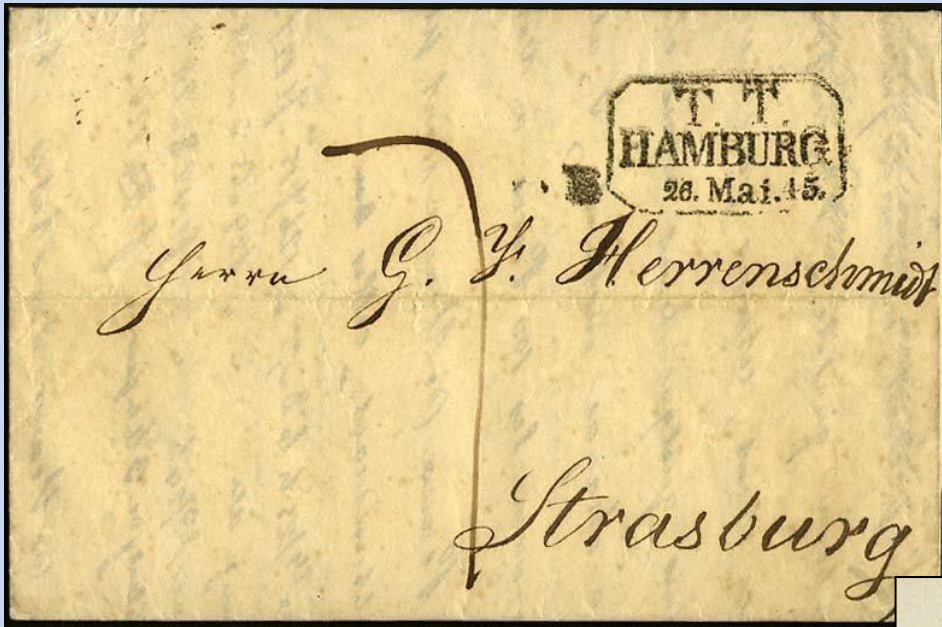 T. T.
HAMBURG
26. Mai. 45.
Herrn G. F. Herrenschmidt
Strasburg